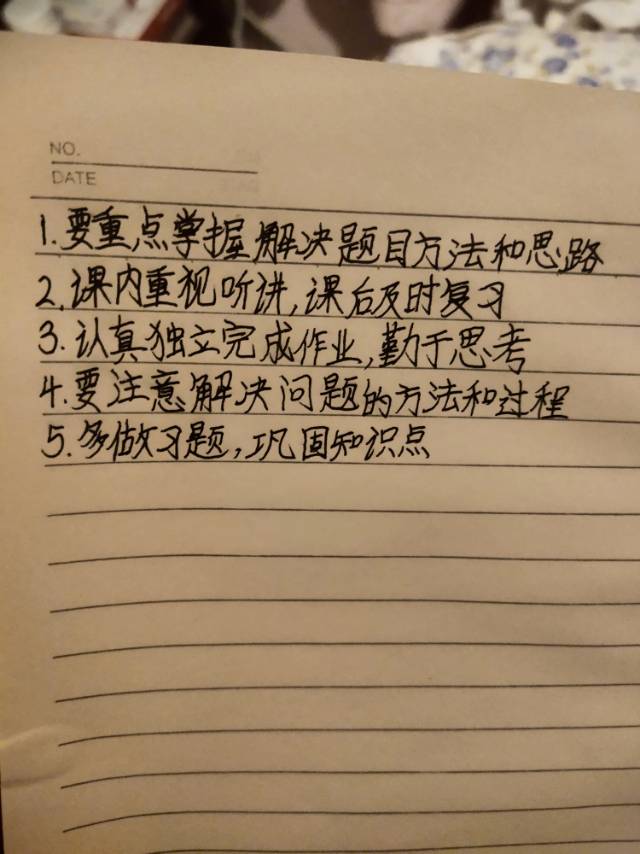 NO.
DATE
1.要重点掌握解决题目方法和思路
2.课内重视听讲,课后及时复习
3.认真独立完成作业,勤于思考
4.要注意解决问题的方法和过程
5.多做习题,巩固知识点